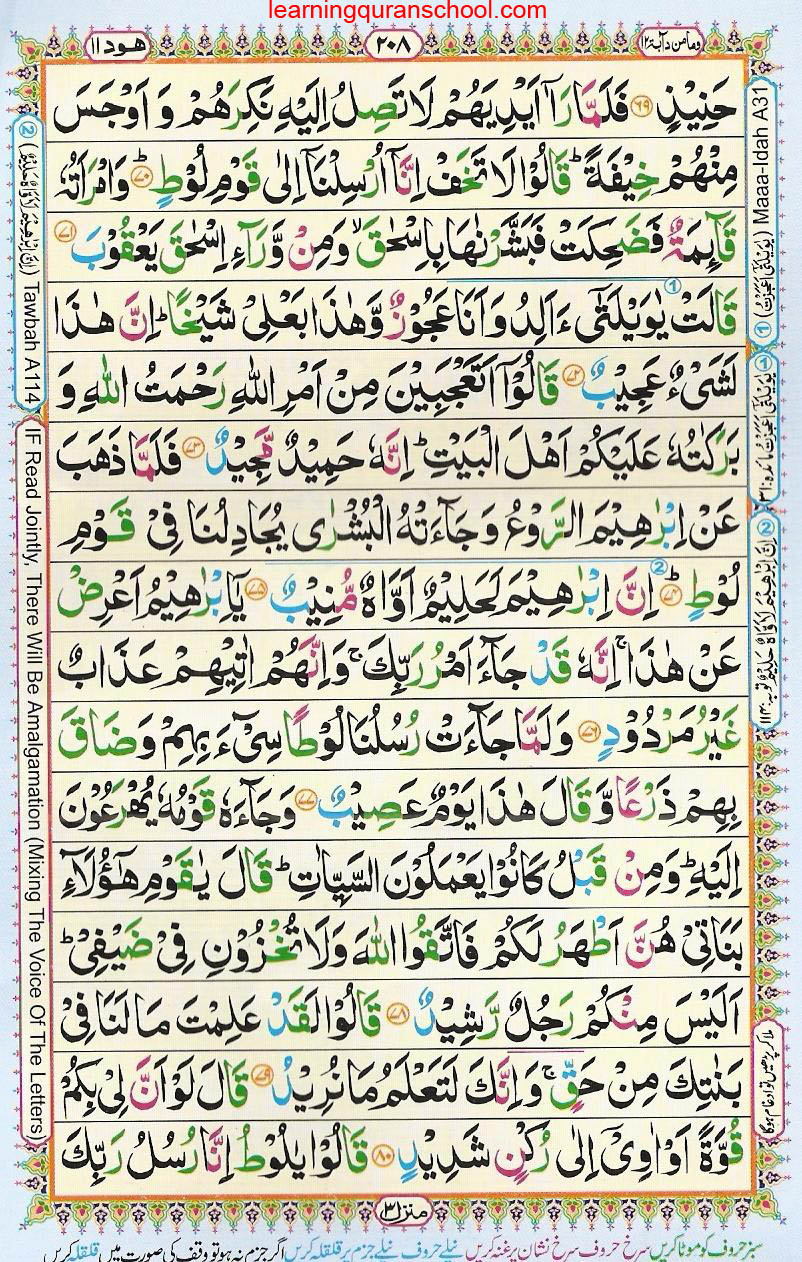 learningquranschool.com
وما من دآبة ١٢
٢٠٨
هود ١١
حَنِيْذٍ ﴿٦٩﴾ فَلَمَّا رَاٰۤ اَيْدِيَهُمْ لَا تَصِلُ اِلَيْهِ نَكِرَهُمْ وَ اَوْجَسَ
مِنْهُمْ خِيْفَةً ؕ قَالُوْا لَا تَخَفْ اِنَّاۤ اُرْسِلْنَاۤ اِلٰى قَوْمِ لُوْطٍ ؕ ﴿٧٠﴾ وَ امْرَاَتُهٗ
قَآئِمَةٌ فَضَحِكَتْ فَبَشَّرْنٰهَا بِاِسْحٰقَ ۙ وَ مِنْ وَّرَآءِ اِسْحٰقَ يَعْقُوْبَ ﴿٧١﴾
قَالَتْ يٰوَيْلَتٰۤى ءَاَلِدُ وَ اَنَا عَجُوْزٌ وَّ هٰذَا بَعْلِيْ شَيْخًا ؕ اِنَّ هٰذَا
لَشَيْءٌ عَجِيْبٌ ﴿٧٢﴾ قَالُوْۤا اَتَعْجَبِيْنَ مِنْ اَمْرِ اللّٰهِ رَحْمَتُ اللّٰهِ وَ
بَرَكٰتُهٗ عَلَيْكُمْ اَهْلَ الْبَيْتِ ؕ اِنَّهٗ حَمِيْدٌ مَّجِيْدٌ ﴿٧٣﴾ فَلَمَّا ذَهَبَ
عَنْ اِبْرٰهِيْمَ الرَّوْعُ وَ جَآءَتْهُ الْبُشْرٰى يُجَادِلُنَا فِيْ قَوْمِ
لُوْطٍ ؕ ﴿٧٤﴾ اِنَّ اِبْرٰهِيْمَ لَحَلِيْمٌ اَوَّاهٌ مُّنِيْبٌ ﴿٧٥﴾ يٰۤاِبْرٰهِيْمُ اَعْرِضْ
عَنْ هٰذَا ۚ اِنَّهٗ قَدْ جَآءَ اَمْرُ رَبِّكَ ۚ وَ اِنَّهُمْ اٰتِيْهِمْ عَذَابٌ
غَيْرُ مَرْدُوْدٍ ﴿٧٦﴾ وَ لَمَّا جَآءَتْ رُسُلُنَا لُوْطًا سِيْٓءَ بِهِمْ وَ ضَاقَ
بِهِمْ ذَرْعًا وَّ قَالَ هٰذَا يَوْمٌ عَصِيْبٌ ﴿٧٧﴾ وَ جَآءَهٗ قَوْمُهٗ يُهْرَعُوْنَ
اِلَيْهِ ؕ وَ مِنْ قَبْلُ كَانُوْا يَعْمَلُوْنَ السَّيِّاٰتِ ؕ قَالَ يٰقَوْمِ هٰۤؤُلَآءِ
بَنَاتِيْ هُنَّ اَطْهَرُ لَكُمْ فَاتَّقُوا اللّٰهَ وَ لَا تُخْزُوْنِ فِيْ ضَيْفِيْ ؕ
اَلَيْسَ مِنْكُمْ رَجُلٌ رَّشِيْدٌ ﴿٧٨﴾ قَالُوْا لَقَدْ عَلِمْتَ مَا لَنَا فِيْ
بَنٰتِكَ مِنْ حَقٍّ ۚ وَ اِنَّكَ لَتَعْلَمُ مَا نُرِيْدُ ﴿٧٩﴾ قَالَ لَوْ اَنَّ لِيْ بِكُمْ
قُوَّةً اَوْ اٰوِيْۤ اِلٰى رُكْنٍ شَدِيْدٍ ﴿٨٠﴾ قَالُوْا يٰلُوْطُ اِنَّا رُسُلُ رَبِّكَ
منزل ٣
سبز حروف کو موٹا کریں سرخ حروف سرخ نشان پر غنہ کریں نیلے حروف نیلے جزم پر قلقلہ کریں اگر جزم نہ ہو تو وقف کی صورت میں قلقلہ کریں
① (يٰوَيْلَتٰۤى اَعَجَزْتُ) Maaa-Idah A31
① يٰوَيْلَتٰۤى اَعَجَزْتُ مائدہ:٣١
② اِنَّ اِبْرٰهِيْمَ لَاَوَّاهٌ حَلِيْمٌ توبہ:١١٤
ملا کر پڑھیں تو ادغام ہوگا
② (اِنَّ اِبْرٰهِيْمَ لَاَوَّاهٌ حَلِيْمٌ) Tawbah A114
IF Read Jointly, There Will Be Amalgamation (Mixing The Voice Of The Letters)